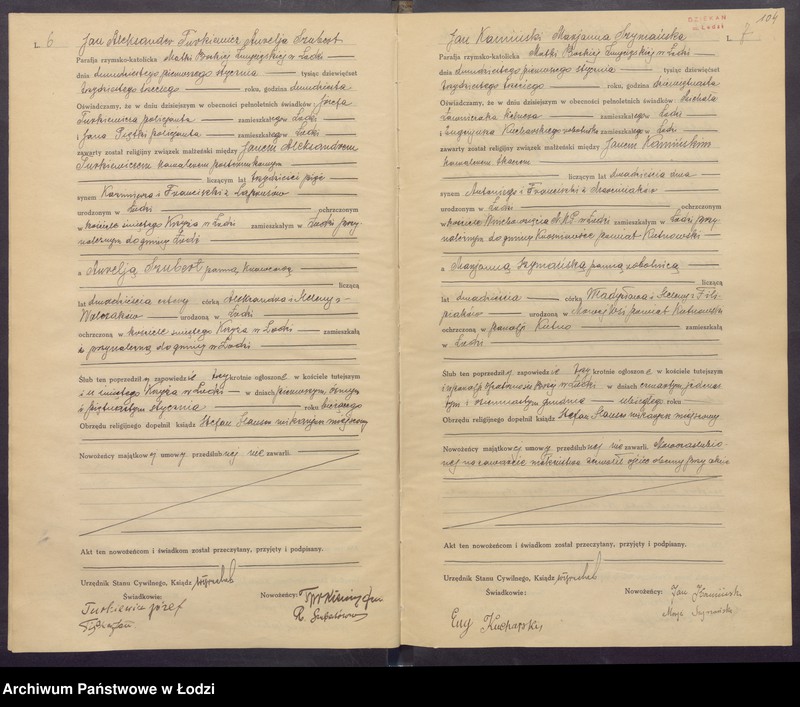 L. 6 Jan Aleksander Turkiewicz Aurelja Szubert
Parafja rzymsko-katolicka Matki Boskiej Zwycięskiej w Łodzi
dnia dwudziestego pierwszego stycznia tysiąc dziewięćset
trzydziestego trzeciego roku, godzina dwudziesta
Oświadczamy, że w dniu dzisiejszym w obecności pełnoletnich świadków Józefa
Turkiewicza policjanta zamieszkałego w Łodzi
i Jana Piętki policjanta zamieszkałego w Łodzi
zawarty został religijny związek małżeński między Janem Aleksandrem
Turkiewiczem kawalerem posterunkowym
liczącym lat trzydzieści pięć
synem Kazimierza i Franciszki z
urodzonym w Łodzi ochrzczonym
w kościele świętego Krzyża w Łodzi zamieszkałym w Łodzi przy-
należnym do gminy Łódź
a Aurelją Szubert panną krawcową
liczącą
lat dwadzieścia cztery córką Aleksandra i Heleny z
Walczaków urodzoną w Łodzi
ochrzczoną w kościele świętego Krzyża w Łodzi zamieszkałą
i przynależną do gminy w Łodzi
Ślub ten poprzedziły zapowiedzie trzykrotnie ogłoszone w kościele tutejszym
i u świętego Krzyża w Łodzi w dniach pierwszym, ósmym
i piętnastym stycznia roku bieżącego
Obrzędu religijnego dopełnił ksiądz Stefan wikarjusz miejscowy
Nowożeńcy majątkowej umowy przedślubnej nie zawarli.
Akt ten nowożeńcom i świadkom został przeczytany, przyjęty i podpisany.
Urzędnik Stanu Cywilnego, Ksiądz
Świadkowie: Nowożeńcy:
Turkiewicz Józef
DZIEKAN
w Łodzi
104
L. 7 Jan Kamiński Marjanna Szymańska
Parafja rzymsko-katolicka Matki Boskiej Zwycięskiej w Łodzi
dnia dwudziestego pierwszego stycznia tysiąc dziewięćset
trzydziestego trzeciego roku, godzina dziewiętnasta
Oświadczamy, że w dniu dzisiejszym w obecności pełnoletnich świadków Michała
kelnera zamieszkałego w Łodzi
i Eugenjusza Kucharskiego robotnika zamieszkałego w Łodzi
zawarty został religijny związek małżeński między Janem Kamińskim
kawalerem tkaczem
liczącym lat dwadzieścia dwa
synem Antoniego i Franciszki z
urodzonym w Łodzi ochrzczonym
w kościele Wniebowzięcia N.M.P. w Łodzi zamieszkałym w Łodzi przy-
należnym do gminy powiat Kutnowski
a Marjanną Szymańską panną robotnicą
liczącą
lat dwadzieścia córką Władysława i Heleny z Fili-
piaków urodzoną w Nowej Wsi powiat Kutnowski
ochrzczoną w parafji Kutno zamieszkałą
w Łodzi
Ślub ten poprzedziły zapowiedzie trzykrotnie ogłoszone w kościele tutejszym
i w parafji Opatrzności Bożej w Łodzi w dniach czwartym, jedena-
stym i osiemnastym grudnia ubiegłego roku
Obrzędu religijnego dopełnił ksiądz Stefan wikarjusz miejscowy
Nowożeńcy majątkowej umowy przedślubnej nie zawarli. Nowozaślubio-
nej na zawarcie małżeństwa zezwolił ojciec obecny przy akcie
Akt ten nowożeńcom i świadkom został przeczytany, przyjęty i podpisany.
Urzędnik Stanu Cywilnego, Ksiądz
Świadkowie: Nowożeńcy: Jan Kamiński
Eug Kucharski
Archiwum Państwowe w Łodzi